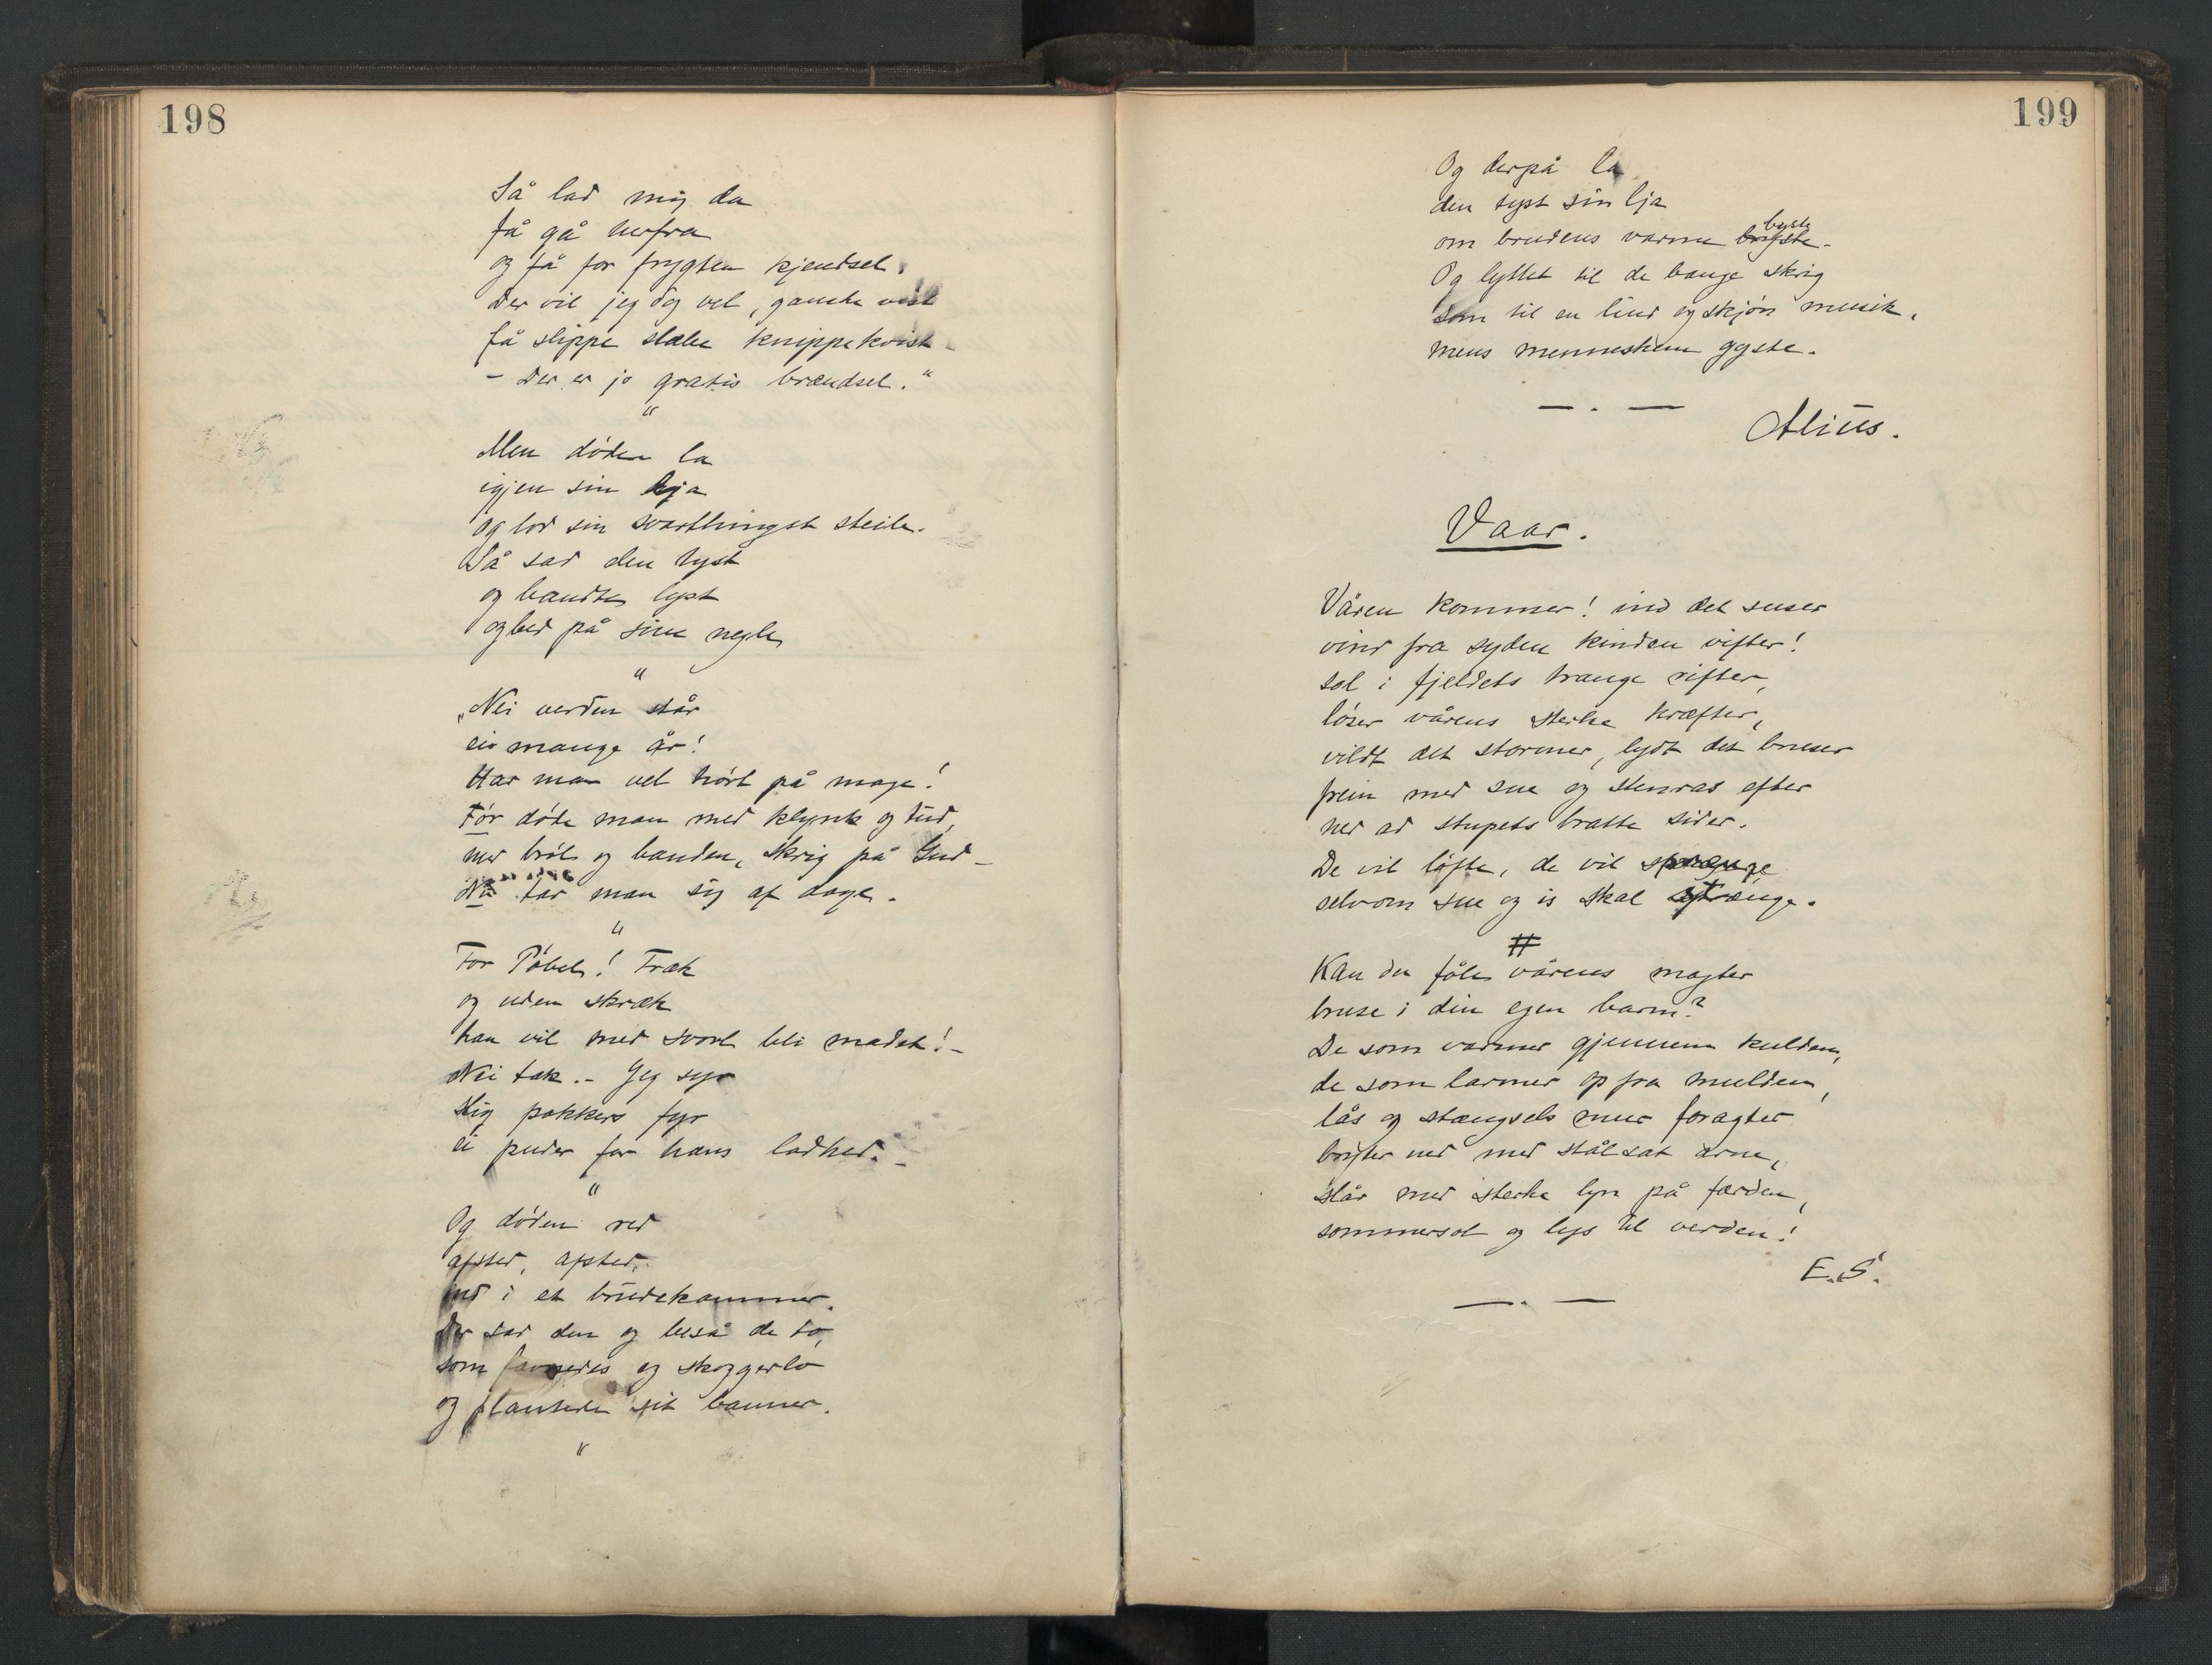 198
Så lad mig da
få gå herfra
og få for frygten kjendsel.
Der vil jeg dog vel, ganske vist
få slippe slæbe knippekvist –
– Der er jo gratis brændsel."
"
Men døden la
igjen sin lja
og lod sin svarthingst steile.
Så sad den tyst
og bandte lyst
og bed på sine negle
"
„Nei verden står
ei mange år!
Har man vel hørt på mage!
Før døde man med klynk og tud,
med brøl og banden, skrig på Gud –
Nu tar man sig af dage.
"
For Pøbel! Træk
og uden skræk
han vil med svovl bli madet! –
Nei tak. – Jeg syr
slig pokkers fyr
ei puder for hans ladhed. –
"
Og døden red
afsted, afsted,
ind i et brudekammer.
Der sad den og beså de to,
som favnedes og skoggerlo
og plantede sit banner.
"
199
Og derpå la
den tyst sin lja
om brudens varme bryste –
byste
Og lyttet til de bange skrig
som til en lind og skjøn musik,
mens menneskene gyste.
— . —
Alius.
Vaar.
Våren kommer! ind det suser
vind fra syden kinden vifter!
sol i fjeldets trange rifter,
løser vårens sterke kræfter,
vildt det stormer, lydt det bruser
frem med sne og stenras efter
ned ad stupets bratte sider.
De vil løfte, de vil sprænge
selvom sne og is skal
#
Kan du føle vårens magter
bruse i din egen barm?
De som varmer gjennem kulden,
de som larmer op fra mulden,
lås og stængsels mur foragter
bryter ned med stålsat arm,
slår med sterke lyn på færden,
sommersol og lys til verden!
E. S.
— . —